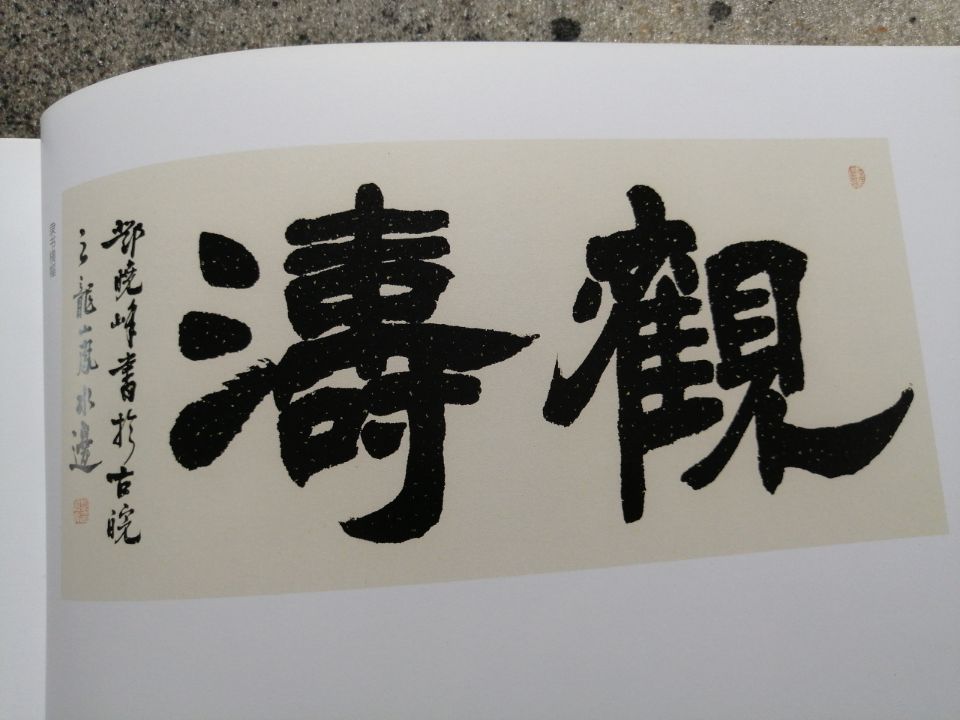 觀濤
鄧曉峰書於古皖
之龍山嵐水邊
隶书横幅